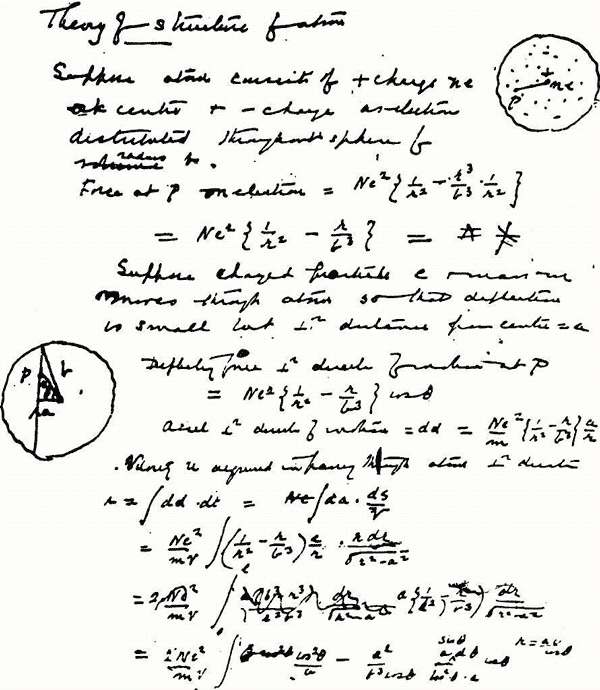 Theory of structure of atom
Suppose atom consists of + charge ne
at centre + - charge as electron
distributed throughout sphere of
radius b.
Force at P on electron = Ne² { 1/r² - r³/b³ · 1/r² }
= Ne² { 1/r² - r/b³ } =
Suppose charged particle e mass m
moves through atom so that deflection
is small but ⊥r distance from centre = a
Deflecting force ⊥r direction of motion at P
= Ne² { 1/r² - r/b³ } cos θ
Accel ⊥r direction of motion = dd = Ne²/m { 1/r² - r/b³ } a/r
Velocity u acquired in passing through atom ⊥r direction
= ∫ dd · dt = ∫ da · ds/V
= Ne²/mV ∫ ( 1/r² - r/b³ ) a/r · r dr/√(r²-a²)
= 2 Ne²/mV ∫ a { 1/r² - r/b³ } dr/√(r²-a²)
= 2Ne²/mV ∫ cos²θ/a - a²/b³ cos θ
P
+
ne
P
b
a